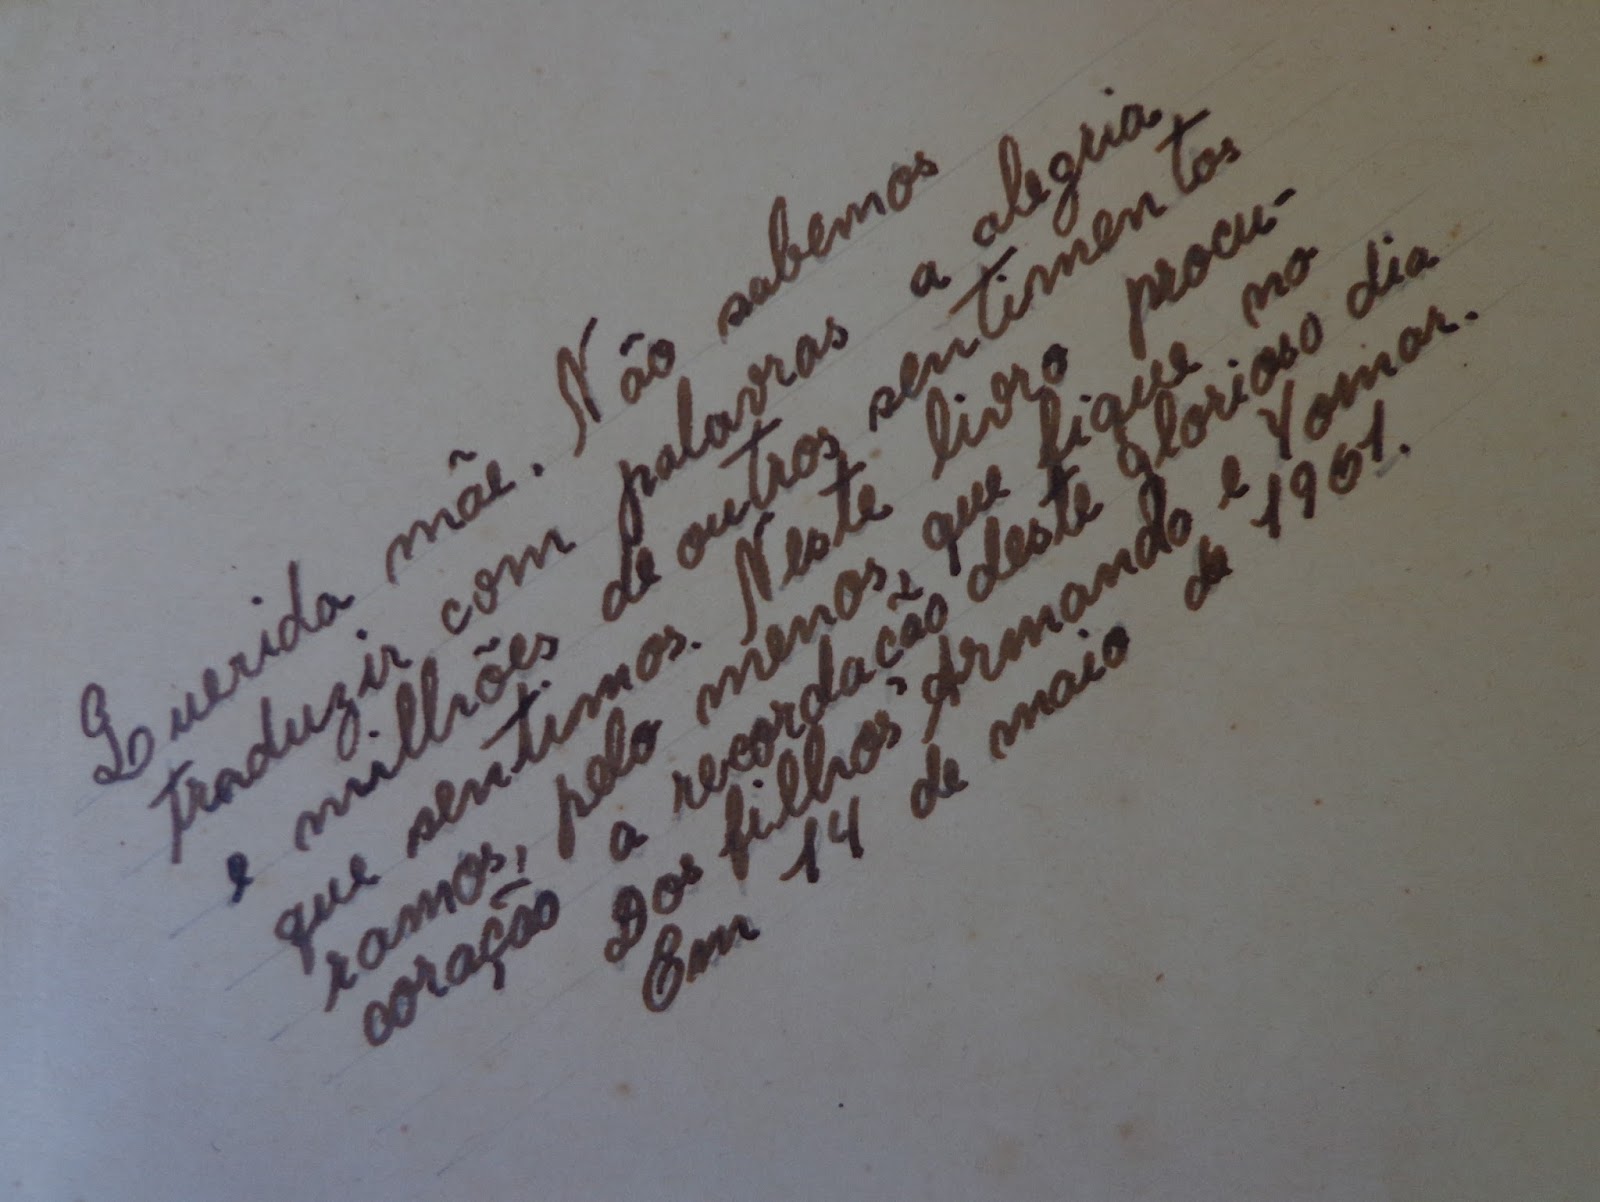 Querida mãe. Não sabemos
traduzir com palavras a alegria
e milhões de outros sentimentos
que sentimos. Neste livro procu-
ramos, pelo menos, que fique no
coração a recordação deste glorioso dia
Dos filhos, Armando e Yomar.
Em 14 de maio de 1961.